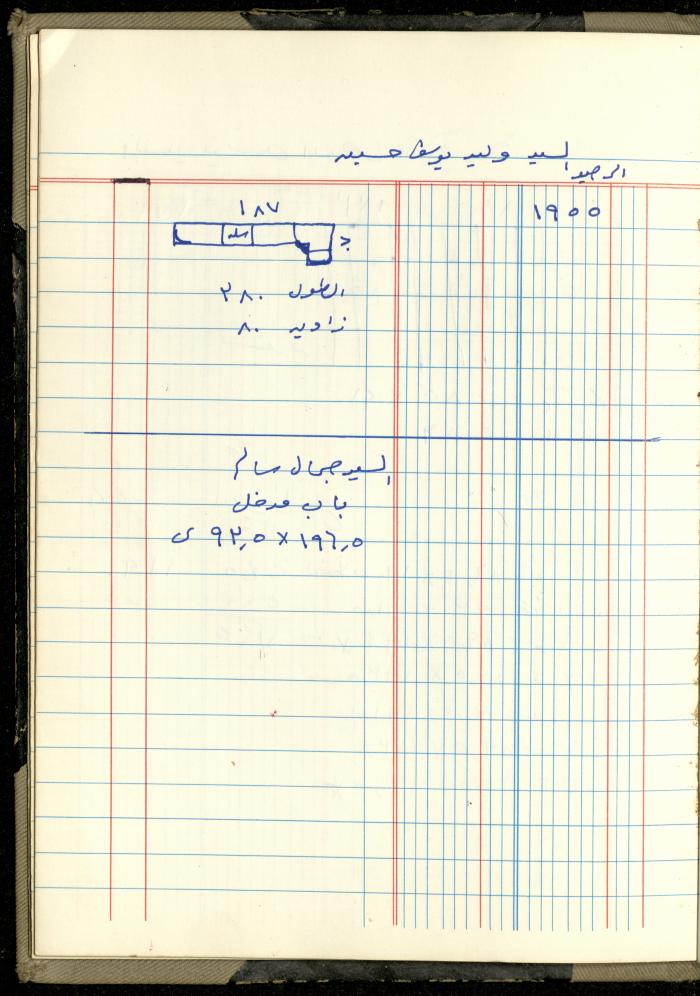 السيد وليد يوسف حسين
الرصيد
١٩٥٥
١٨٧
الطول ٣٨٠
زاويه ٨٠
السيد جمال سالم
باب مدخل
١٩٦,٥ × ٩٢,٥ ى